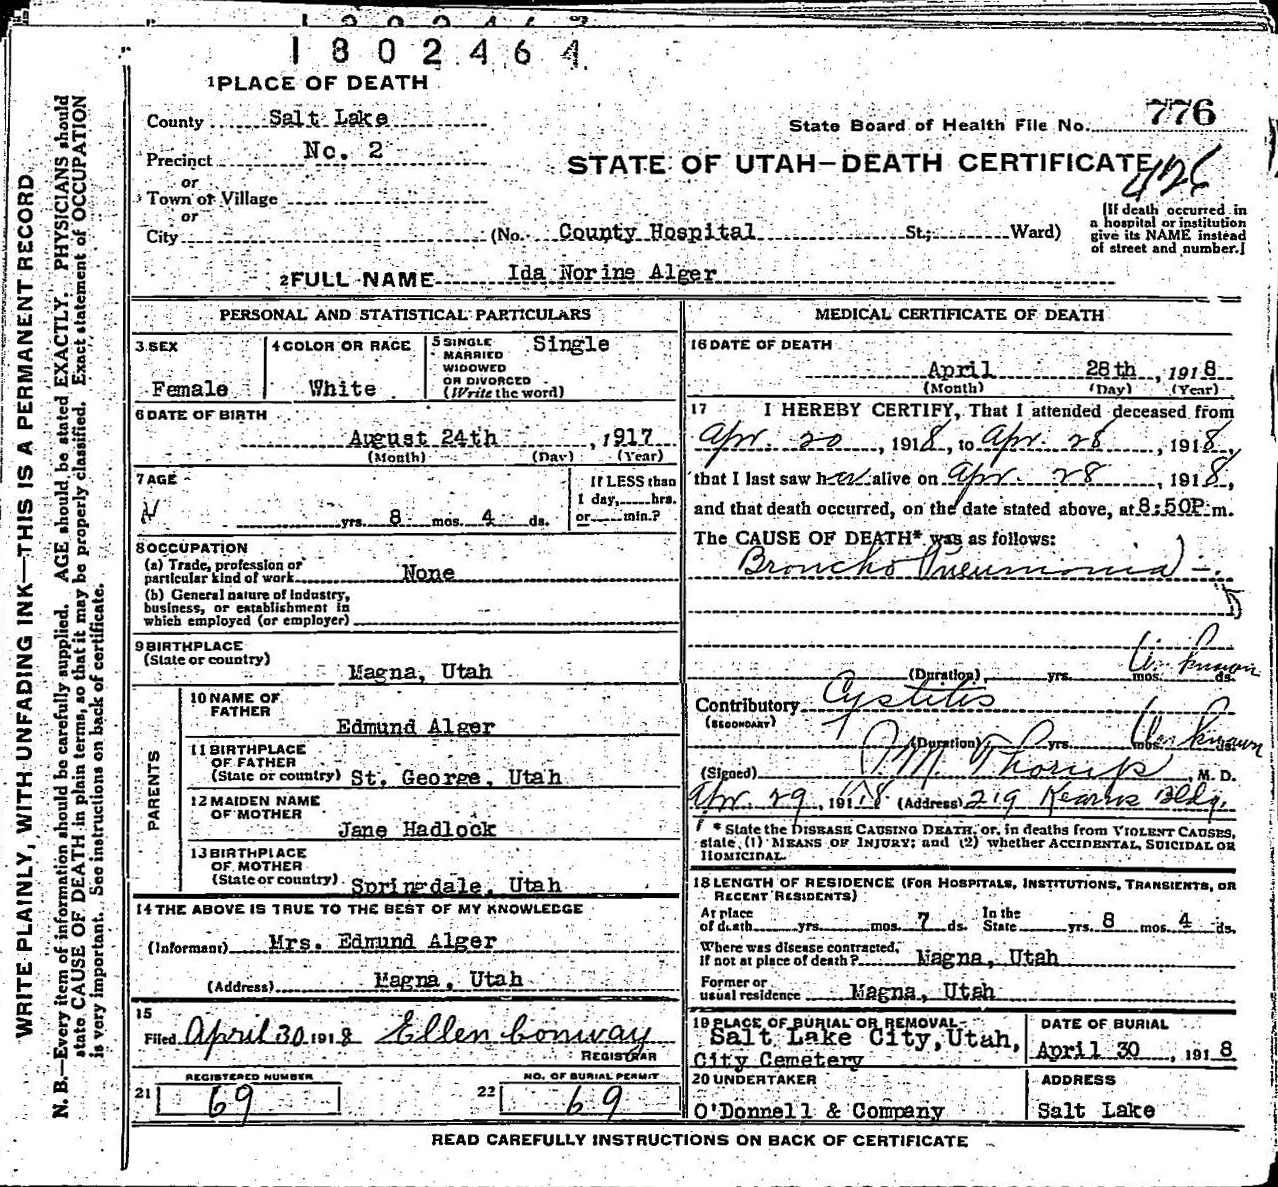 1802464
1 PLACE OF DEATH
County Salt Lake
State Board of Health File No. 776
Precinct No. 2
STATE OF UTAH—DEATH CERTIFICATE
426
or
Town of Village
or
City (No. County Hospital St.; Ward)
[If death occurred in
a hospital or institution
give its NAME instead
of street and number.]
2 FULL NAME Ida Norine Alger
PERSONAL AND STATISTICAL PARTICULARS
3 SEX
Female
4 COLOR OR RACE
White
5 SINGLE
MARRIED
WIDOWED
OR DIVORCED
(Write the word)
Single
6 DATE OF BIRTH
August 24th, 1917
(Month) (Day) (Year)
7 AGE
yrs. 8 mos. 4 ds.
If LESS than
1 day, hrs.
or min.?
8 OCCUPATION
(a) Trade, profession or
particular kind of work None
(b) General nature of Industry,
business, or establishment in
which employed (or employer)
9 BIRTHPLACE
(State or country)
Magna, Utah
PARENTS
10 NAME OF
FATHER
Edmund Alger
11 BIRTHPLACE
OF FATHER
(State or country) St. George, Utah
12 MAIDEN NAME
OF MOTHER
Jane Hadlock
13 BIRTHPLACE
OF MOTHER
(State or country) Springdale, Utah
14 THE ABOVE IS TRUE TO THE BEST OF MY KNOWLEDGE
(Informant) Mrs. Edmund Alger
(Address) Magna, Utah
15
Filed April 30 1918 Ellen Conway
REGISTRAR
REGISTERED NUMBER
21 69
NO. OF BURIAL PERMIT
22 69
MEDICAL CERTIFICATE OF DEATH
16 DATE OF DEATH
April 28th, 1918
(Month) (Day) (Year)
17 I HEREBY CERTIFY, That I attended deceased from
Apr. 20, 1918, to Apr. 28, 1918,
that I last saw her alive on Apr. 28, 1918,
and that death occurred, on the date stated above, at 8:50P m.
The CAUSE OF DEATH* was as follows:
Broncho Pneumonia
(Duration) yrs. mos. ds. Unknown
Contributory Cystitis
(SECONDARY)
(Duration) yrs. mos. ds. Unknown
(Signed) Thorup, M. D.
Apr. 29, 1918 (Address) 219 Kearns Bldg.
* State the DISEASE CAUSING DEATH, or, in deaths from VIOLENT CAUSES,
state (1) MEANS OF INJURY; and (2) whether ACCIDENTAL, SUICIDAL OR
HOMICIDAL.
18 LENGTH OF RESIDENCE (FOR HOSPITALS, INSTITUTIONS, TRANSIENTS, OR
RECENT RESIDENTS)
At place
of death yrs. mos. 7 ds. In the
State yrs. 8 mos. 4 ds.
Where was disease contracted,
If not at place of death? Magna, Utah
Former or
usual residence Magna, Utah
19 PLACE OF BURIAL OR REMOVAL
Salt Lake City, Utah,
City Cemetery
DATE OF BURIAL
April 30, 1918
20 UNDERTAKER
O'Donnell & Company
ADDRESS
Salt Lake
READ CAREFULLY INSTRUCTIONS ON BACK OF CERTIFICATE
WRITE PLAINLY, WITH UNFADING INK—THIS IS A PERMANENT RECORD
N. B.—Every item of information should be carefully supplied. AGE should be stated EXACTLY. PHYSICIANS should
state CAUSE OF DEATH in plain terms, so that it may be properly classified. Exact statement of OCCUPATION
is very important. See instructions on back of certificate.